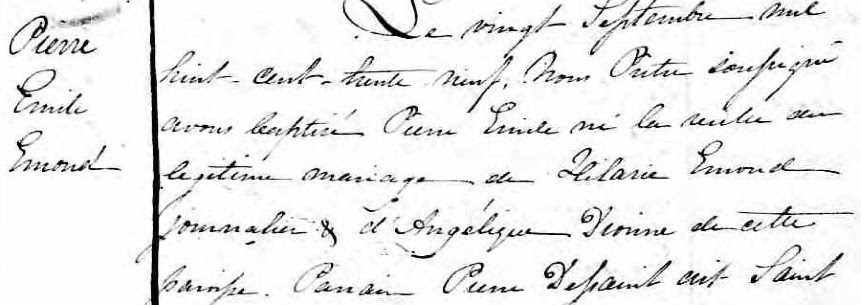 Pierre
Emile
Emond
Le vingt Septembre mil
huit-cent-trente neuf. Nous Prêtre soussigné
avons baptisé Pierre Emile né la veille du
légitime mariage de Hilarie Emond
journalier & d'Angélique Dionne de cette
paroisse. Parrain Pierre Dessaint dit Saint